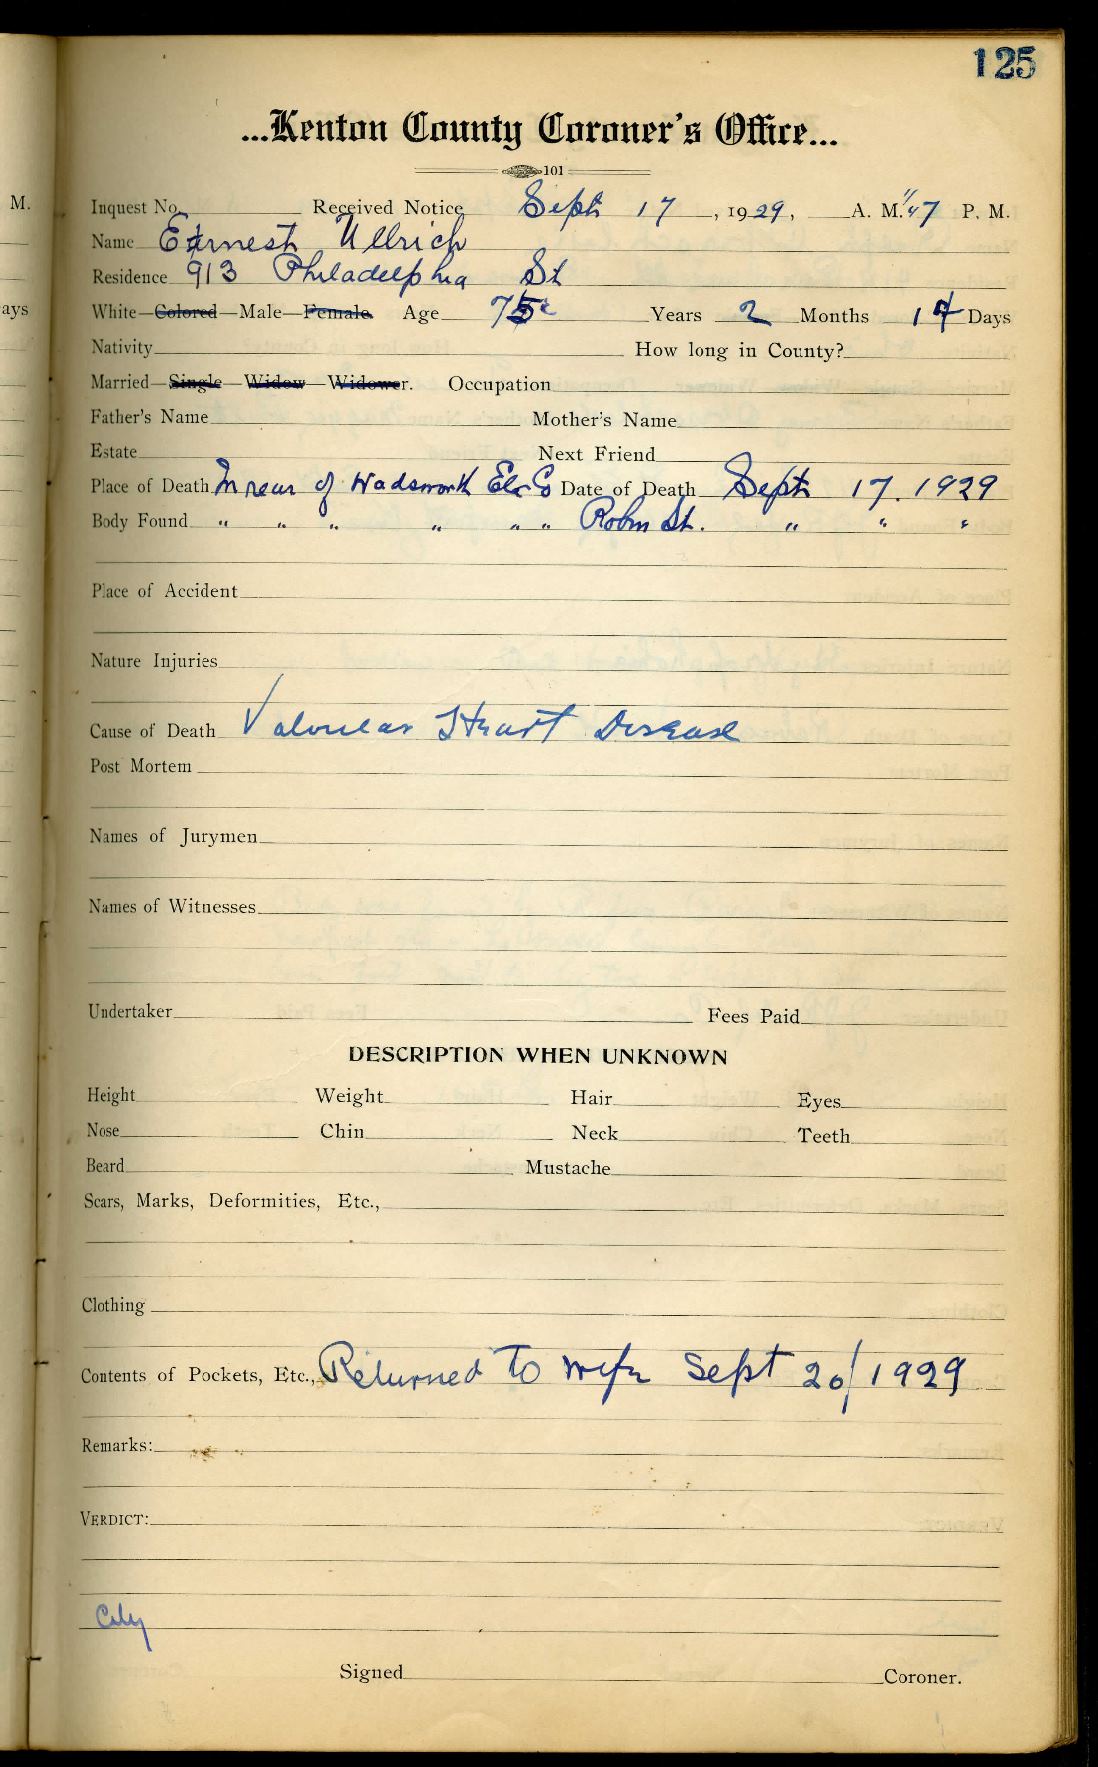 125
M.
...Kenton County Coroner's Office...
101
Inquest No. Received Notice Sept 17, 1929, A. M. 11/47 P. M.
Name Earnest Ullrich
Residence 913 Philadelphia St
ays
White—Colored—Male—Female. Age 75 Years 2 Months 14 Days
Nativity How long in County?
Married—Single—Widow—Widower. Occupation
Father's Name Mother's Name
Estate Next Friend
Place of Death In rear of Wadsworth El Co Date of Death Sept 17. 1929
Body Found " " " " " " Robin St. " " "
Place of Accident
Nature Injuries
Cause of Death Valvular Heart Disease
Post Mortem
Names of Jurymen
Names of Witnesses
Undertaker Fees Paid
DESCRIPTION WHEN UNKNOWN
Height Weight Hair Eyes
Nose Chin Neck Teeth
Beard Mustache
Scars, Marks, Deformities, Etc.,
Clothing
Contents of Pockets, Etc., Returned To wife Sept 20/1929
Remarks:
VERDICT:
City
Signed Coroner.